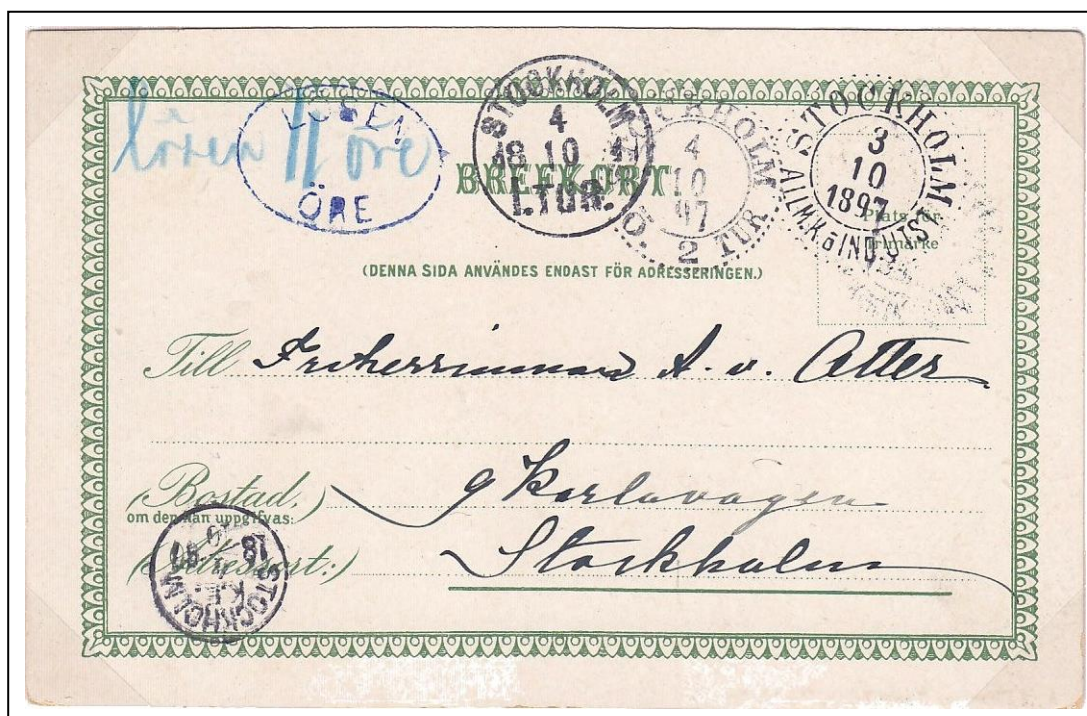 lösen 11 öre
LÖSEN
ÖRE
STOCKHOLM
4
18 10 97
1.TUR.
STOCKHOLM
4
10
97
Ö. 2 TUR.
STOCKHOLM
3
10
1897
ALLM.K.& IND.UTST.
BREFKORT.
Plats för
frimärke
(DENNA SIDA ANVÄNDES ENDAST FÖR ADRESSERINGEN.)
Till Friherrinnan A. v. Otter
(Bostad,
om den kan uppgifvas:)
9 Karlavägen
(Adressort:)
Stockholm
STOCKHOLM
18 97
K.E.